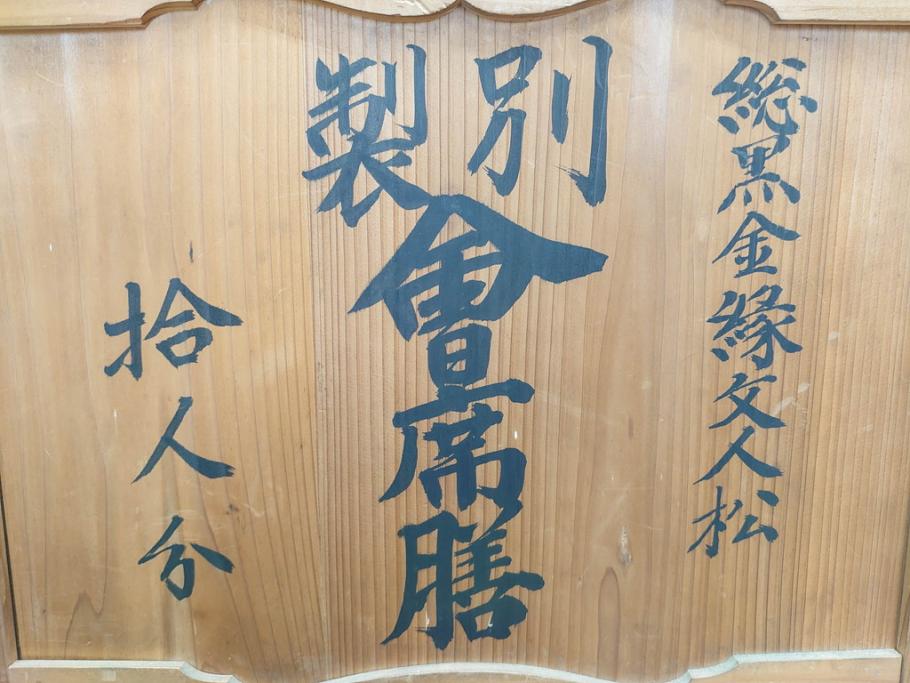 総黒金縁文人松
別製
會席膳
拾人分